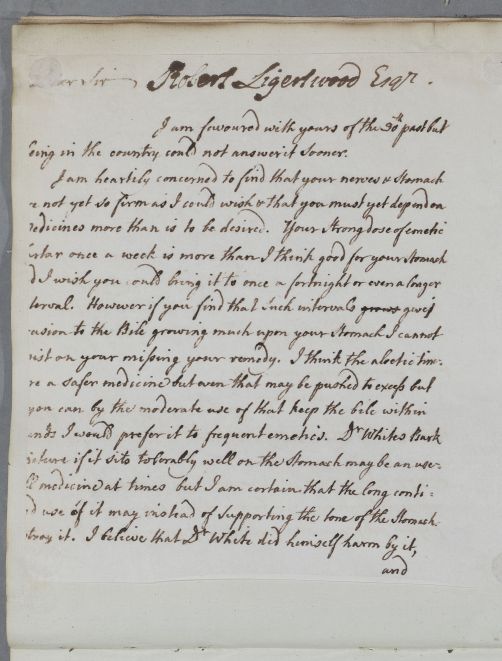 Dear Sir Robert Ligertwood Esqr.
I am favoured with yours of the 30th past but
being in the country could not answer it sooner.
I am heartily concerned to find that your nerves & Stomach
re not yet so firm as I could wish & that you must yet depend on
medicines more than is to be desired. Your strong dose of emetic
artar once a week is more than I think good for your Stomach
d I wish you could bring it to once a fortnight or even a longer
terval. However if you find that Such intervals grows gives
casion to the Bile growing much upon your Stomach I cannot
sist on your missing your remedy. I think the aloetic tinc:
re a safer medicine but even that may be pushed to excess but
you can by the moderate use of that keep the bile within
unds I would prefer it to frequent emetics. Dr Whites Bark
ncture if it sits tolerably well on the Stomach may be an use=
ll medicine at times but I am certain that the long conti=
d use of it may instead of supporting the tone of the Stomach
stroy it. I believe that Dr White did himself harm by it,
and